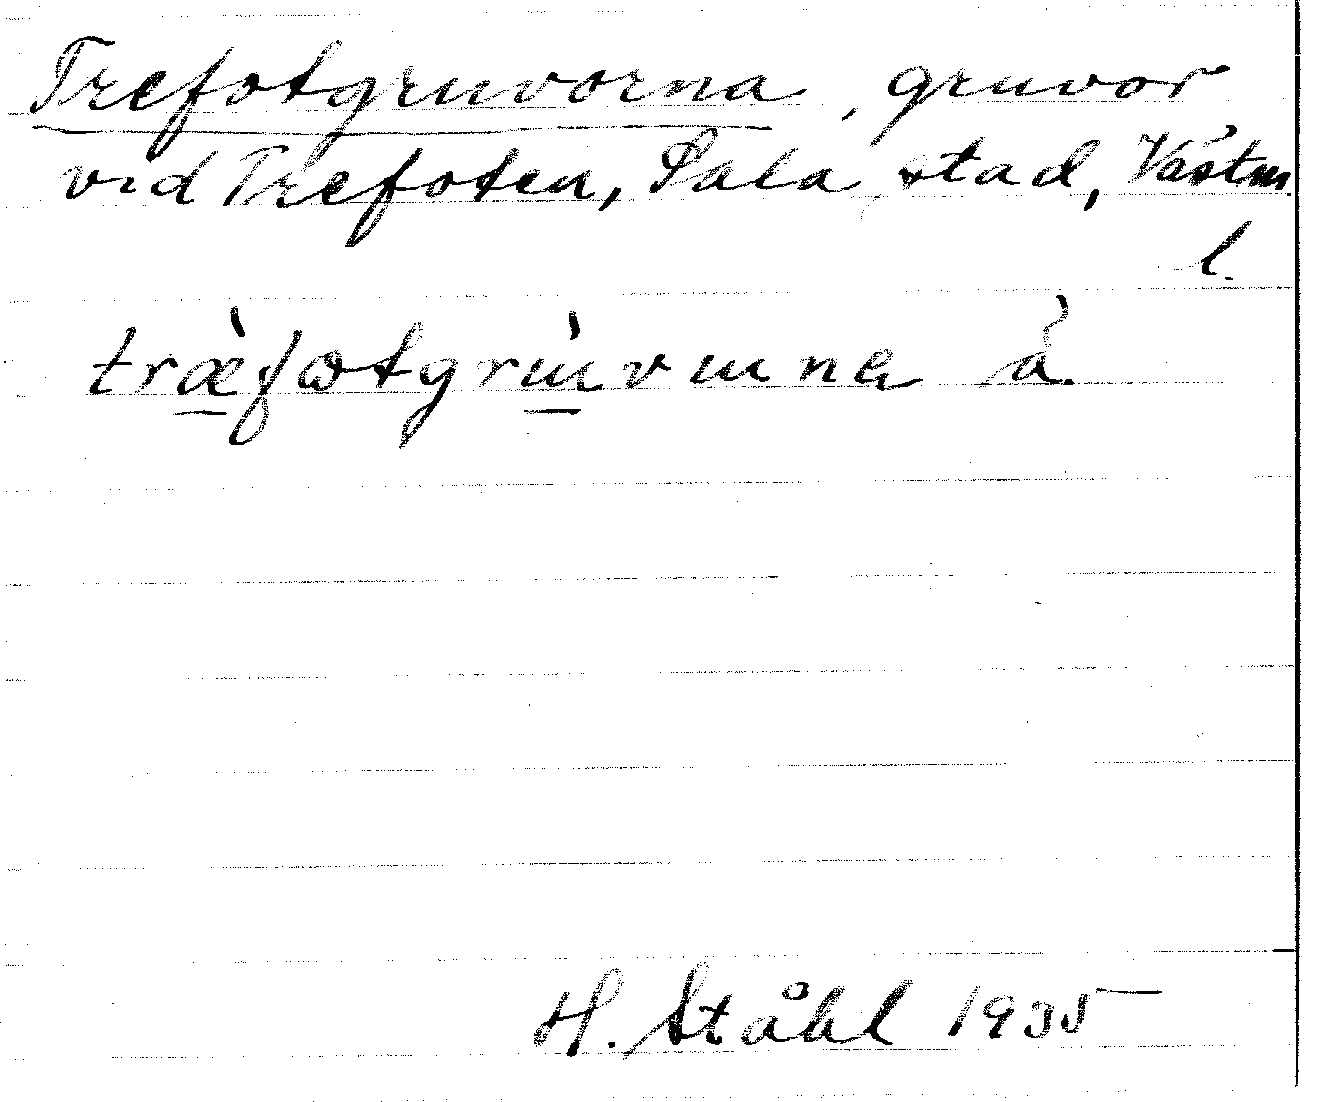 Trefotgruvorna, gruvor
vid Trefoten, Sala stad, Västm
l.
H. Ståhl 1935